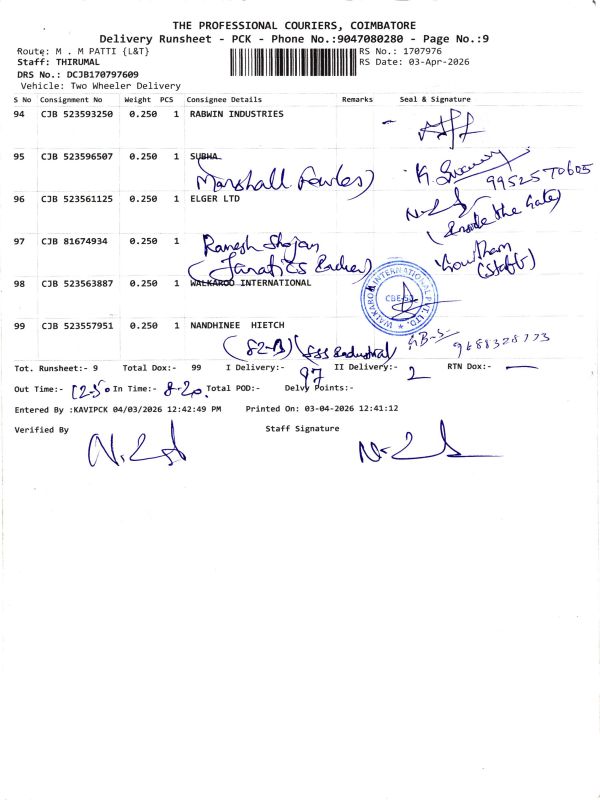 THE PROFESSIONAL COURIERS, COIMBATORE
Delivery Runsheet - PCK - Phone No.:9047080280 - Page No.:9
Route: M . M PATTI {L&T} RS No.: 1707976
Staff: THIRUMAL RS Date: 03-Apr-2026
DRS No.: DCJB170797609
Vehicle: Two Wheeler Delivery
S No Consignment No Weight PCS Consignee Details Remarks Seal & Signature
94 CJB 523593250 0.250 1 RABWIN INDUSTRIES
95 CJB 523596507 0.250 1 SUBHA
9952570605
96 CJB 523561125 0.250 1 ELGER LTD
(Inside the Gate)
97 CJB 81674934 0.250 1 Ramesh
Gowtham
(Staff)
98 CJB 523563887 0.250 1 WALKAROO INTERNATIONAL
WALKAROO INTERNATIONAL PVT. LTD.
99 CJB 523557951 0.250 1 NANDHINEE HIETCH
(SSS Industrial
Tot. Runsheet:- 9 Total Dox:- 99 I Delivery:- 97 II Delivery:- 2 RTN Dox:- —
Out Time:- 12-50 In Time:- 8-20. Total POD:- Delvy Points:-
Entered By :KAVIPCK 04/03/2026 12:42:49 PM Printed On: 03-04-2026 12:41:12
Verified By Staff Signature